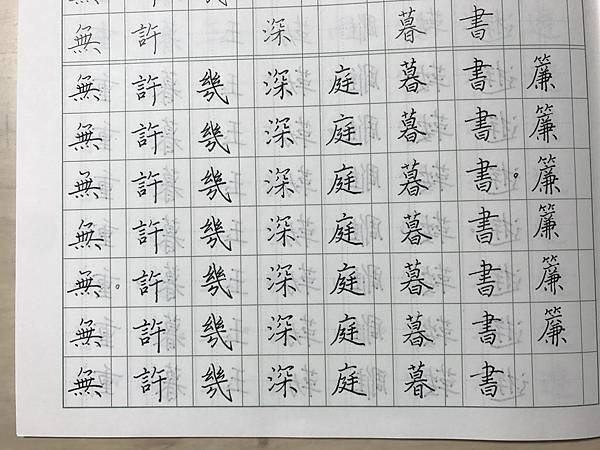 簾簾簾簾簾簾
書書書書。書書書書
暮暮暮暮暮暮暮暮
庭庭庭庭庭庭庭
深深深深深深深深
幾幾幾幾幾幾幾
許許許許許許許許
無無無無無無。無無